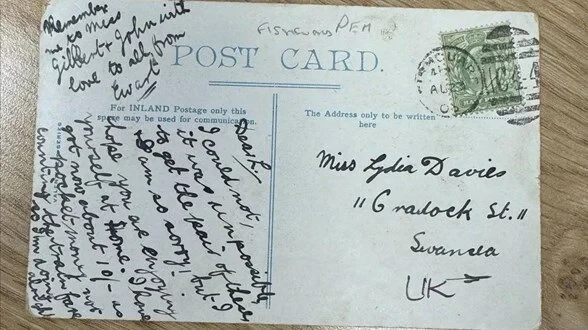 Remember
me to Miss
Gilbert & John with
love to all from
Ewart
FISHGUARD PEM
POST CARD.
For INLAND Postage only this
space may be used for communication.
The Address only to be written
here
Dear L,
I could not,
it was impossible
to get the pair of these
I am so sorry! but I
hope you are enjoying
yourself at home. I have
got now about 10/- as
pocket money, not
counting the train fare
so I'm doing
alright
Miss Lydia Davies
"Cradock St."
Swansea
UK
AU 23